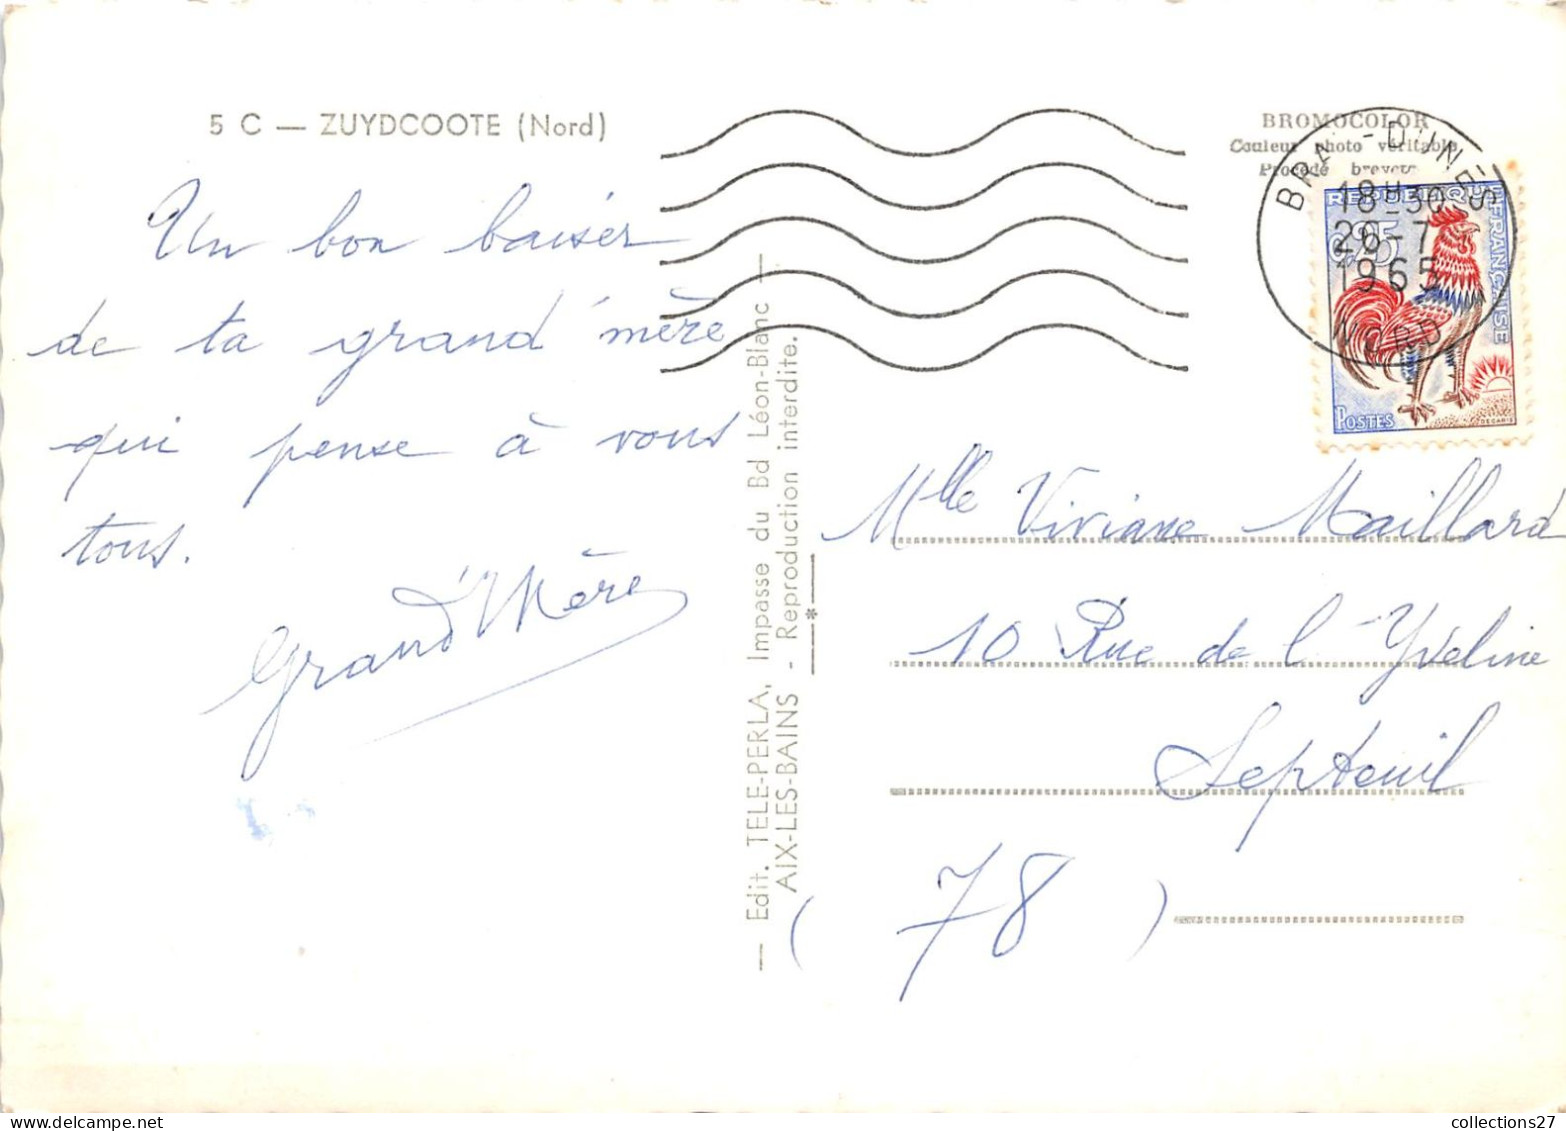 5 C — ZUYDCOOTE (Nord)
Un bon baiser
de ta grand'mère
qui pense à vous
tous.
Grand'Mère
— Edit. TELE-PERLA, Impasse du Bd Léon-Blanc —
AIX-LES-BAINS - Reproduction interdite.
BROMOCOLOR
Couleur photo véritable
Procédé
BRAY-DUNES
18H30
26-7
1965
NORD
REPUBLIQUE FRANÇAISE
0,25
POSTES
DECARIS
Mlle Viviane Maillard
10 Rue de l'Yveline
Septeuil
(78)
collections27